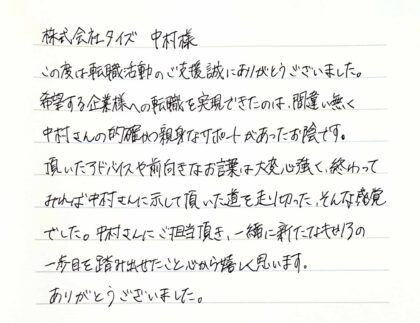 株式会社タイズ 中村様
この度は転職活動のご支援誠にありがとうございました。
希望する企業様への転職を実現できたのは、間違い無く
中村さんの的確かつ親身なサポートがあったお陰です。
頂いたアドバイスや前向きなお言葉は大変心強く、終わって
みれば中村さんに示して頂いた道を走り切った、そんな感覚
でした。中村さんにご担当頂き、一緒に新たなキャリアの
一歩目を踏み出せたこと心から嬉しく思います。
ありがとうございました。